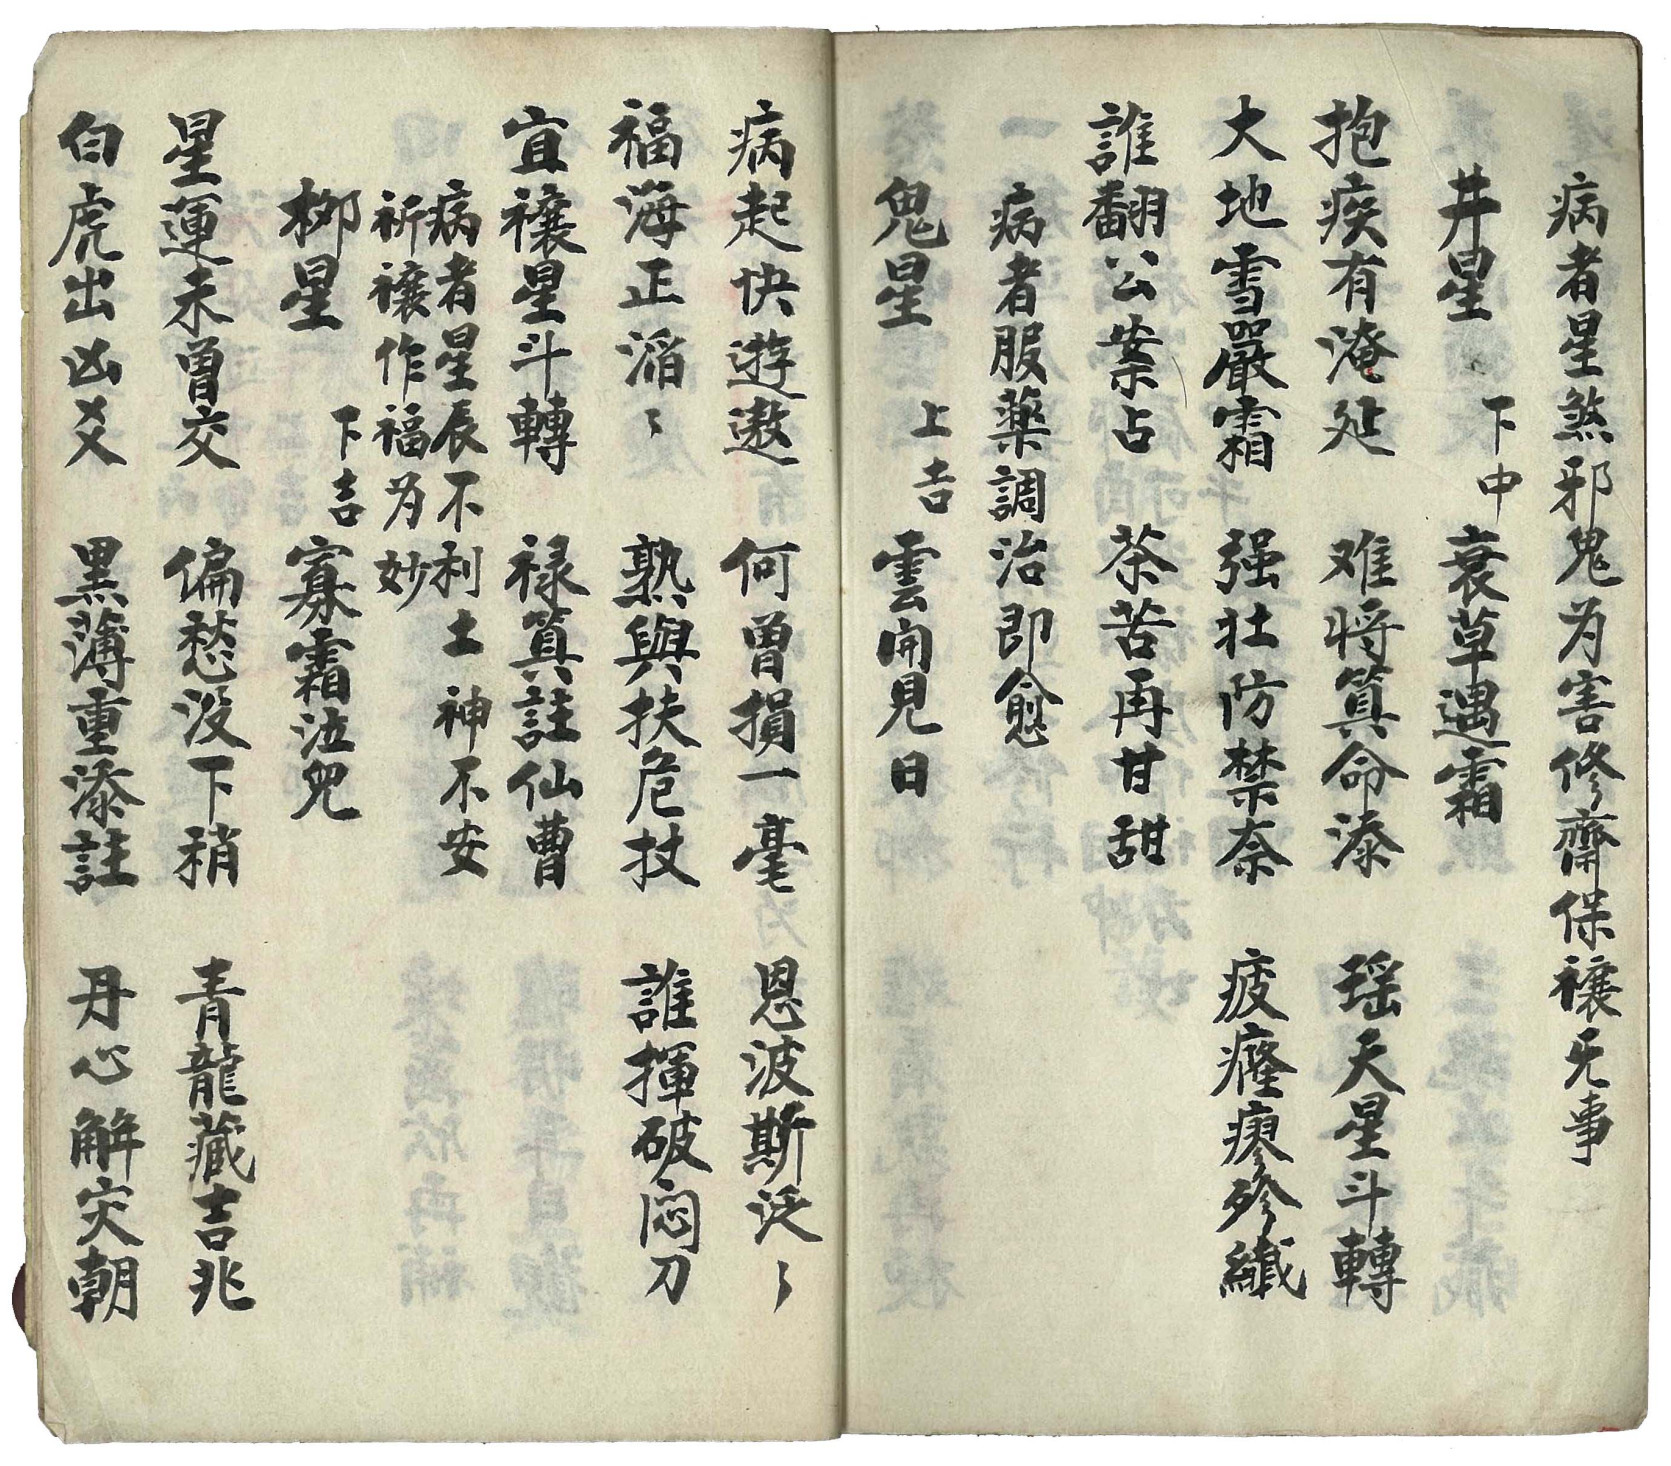 病者星煞邪鬼为害修齋保禳无事
井星 下中 衰草遇霜
抱疾有淹延 难将筭命添 瑶天星斗轉
大地雪嚴霜 强壮防禁奈 疲癃瘳殄纖
誰翻公案占 茶苦再甘甜
病者服藥調治即愈
鬼星 上吉 雲開見日
病起快遊遨 何曾損一毫 恩波斯泛〻
福海正滔〻 熟與扶危扙 誰揮破悶刀
宜禳星斗轉 禄筭註仙曹
病者星辰不利土神不安
祈禳作福为妙
栁星 下吉 寡霜泣兒
星運未曾交 偏愁没下稍 青龍藏吉兆
白虎出凶爻 黑薄重添註 丹心解灾朝